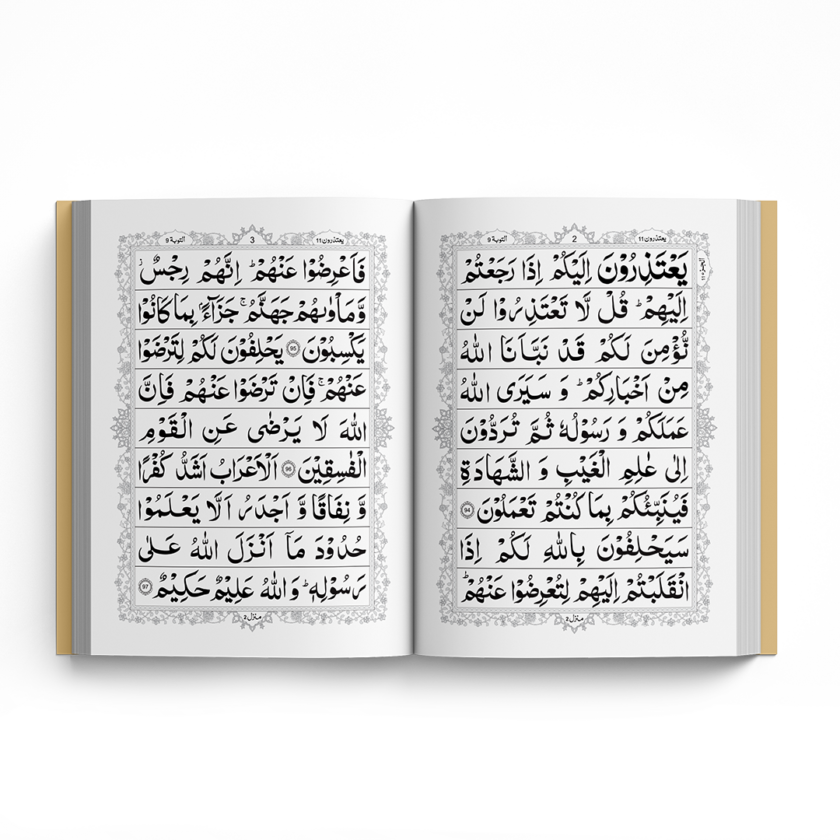 التوبة 9
2
يعتذرون 11
الجزء 11
يَعْتَذِرُوْنَ اِلَيْكُمْ اِذَا رَجَعْتُمْ
اِلَيْهِمْ ؕ قُلْ لَّا تَعْتَذِرُوْا لَنْ
نُّؤْمِنَ لَكُمْ قَدْ نَبَّاَنَا اللّٰهُ
مِنْ اَخْبَارِكُمْ ؕ وَ سَيَرَى اللّٰهُ
عَمَلَكُمْ وَ رَسُوْلُهٗ ثُمَّ تُرَدُّوْنَ
اِلٰى عٰلِمِ الْغَيْبِ وَ الشَّهَادَةِ
فَيُنَبِّئُكُمْ بِمَا كُنْتُمْ تَعْمَلُوْنَ 94
سَيَحْلِفُوْنَ بِاللّٰهِ لَكُمْ اِذَا
انْقَلَبْتُمْ اِلَيْهِمْ لِتُعْرِضُوْا عَنْهُمْ ؕ
منزل 2
التوبة 9
3
يعتذرون 11
فَاَعْرِضُوْا عَنْهُمْ ؕ اِنَّهُمْ رِجْسٌ ؗ
وَّ مَاْوٰىهُمْ جَهَنَّمُ ۚ جَزَآءًۢ بِمَا كَانُوْا
يَكْسِبُوْنَ 95 يَحْلِفُوْنَ لَكُمْ لِتَرْضَوْا
عَنْهُمْ ۚ فَاِنْ تَرْضَوْا عَنْهُمْ فَاِنَّ
اللّٰهَ لَا يَرْضٰى عَنِ الْقَوْمِ
الْفٰسِقِيْنَ 96 اَلْاَعْرَابُ اَشَدُّ كُفْرًا
وَّ نِفَاقًا وَّ اَجْدَرُ اَلَّا يَعْلَمُوْا
حُدُوْدَ مَاۤ اَنْزَلَ اللّٰهُ عَلٰى
رَسُوْلِهٖ ؕ وَ اللّٰهُ عَلِيْمٌ حَكِيْمٌ 97
منزل 2